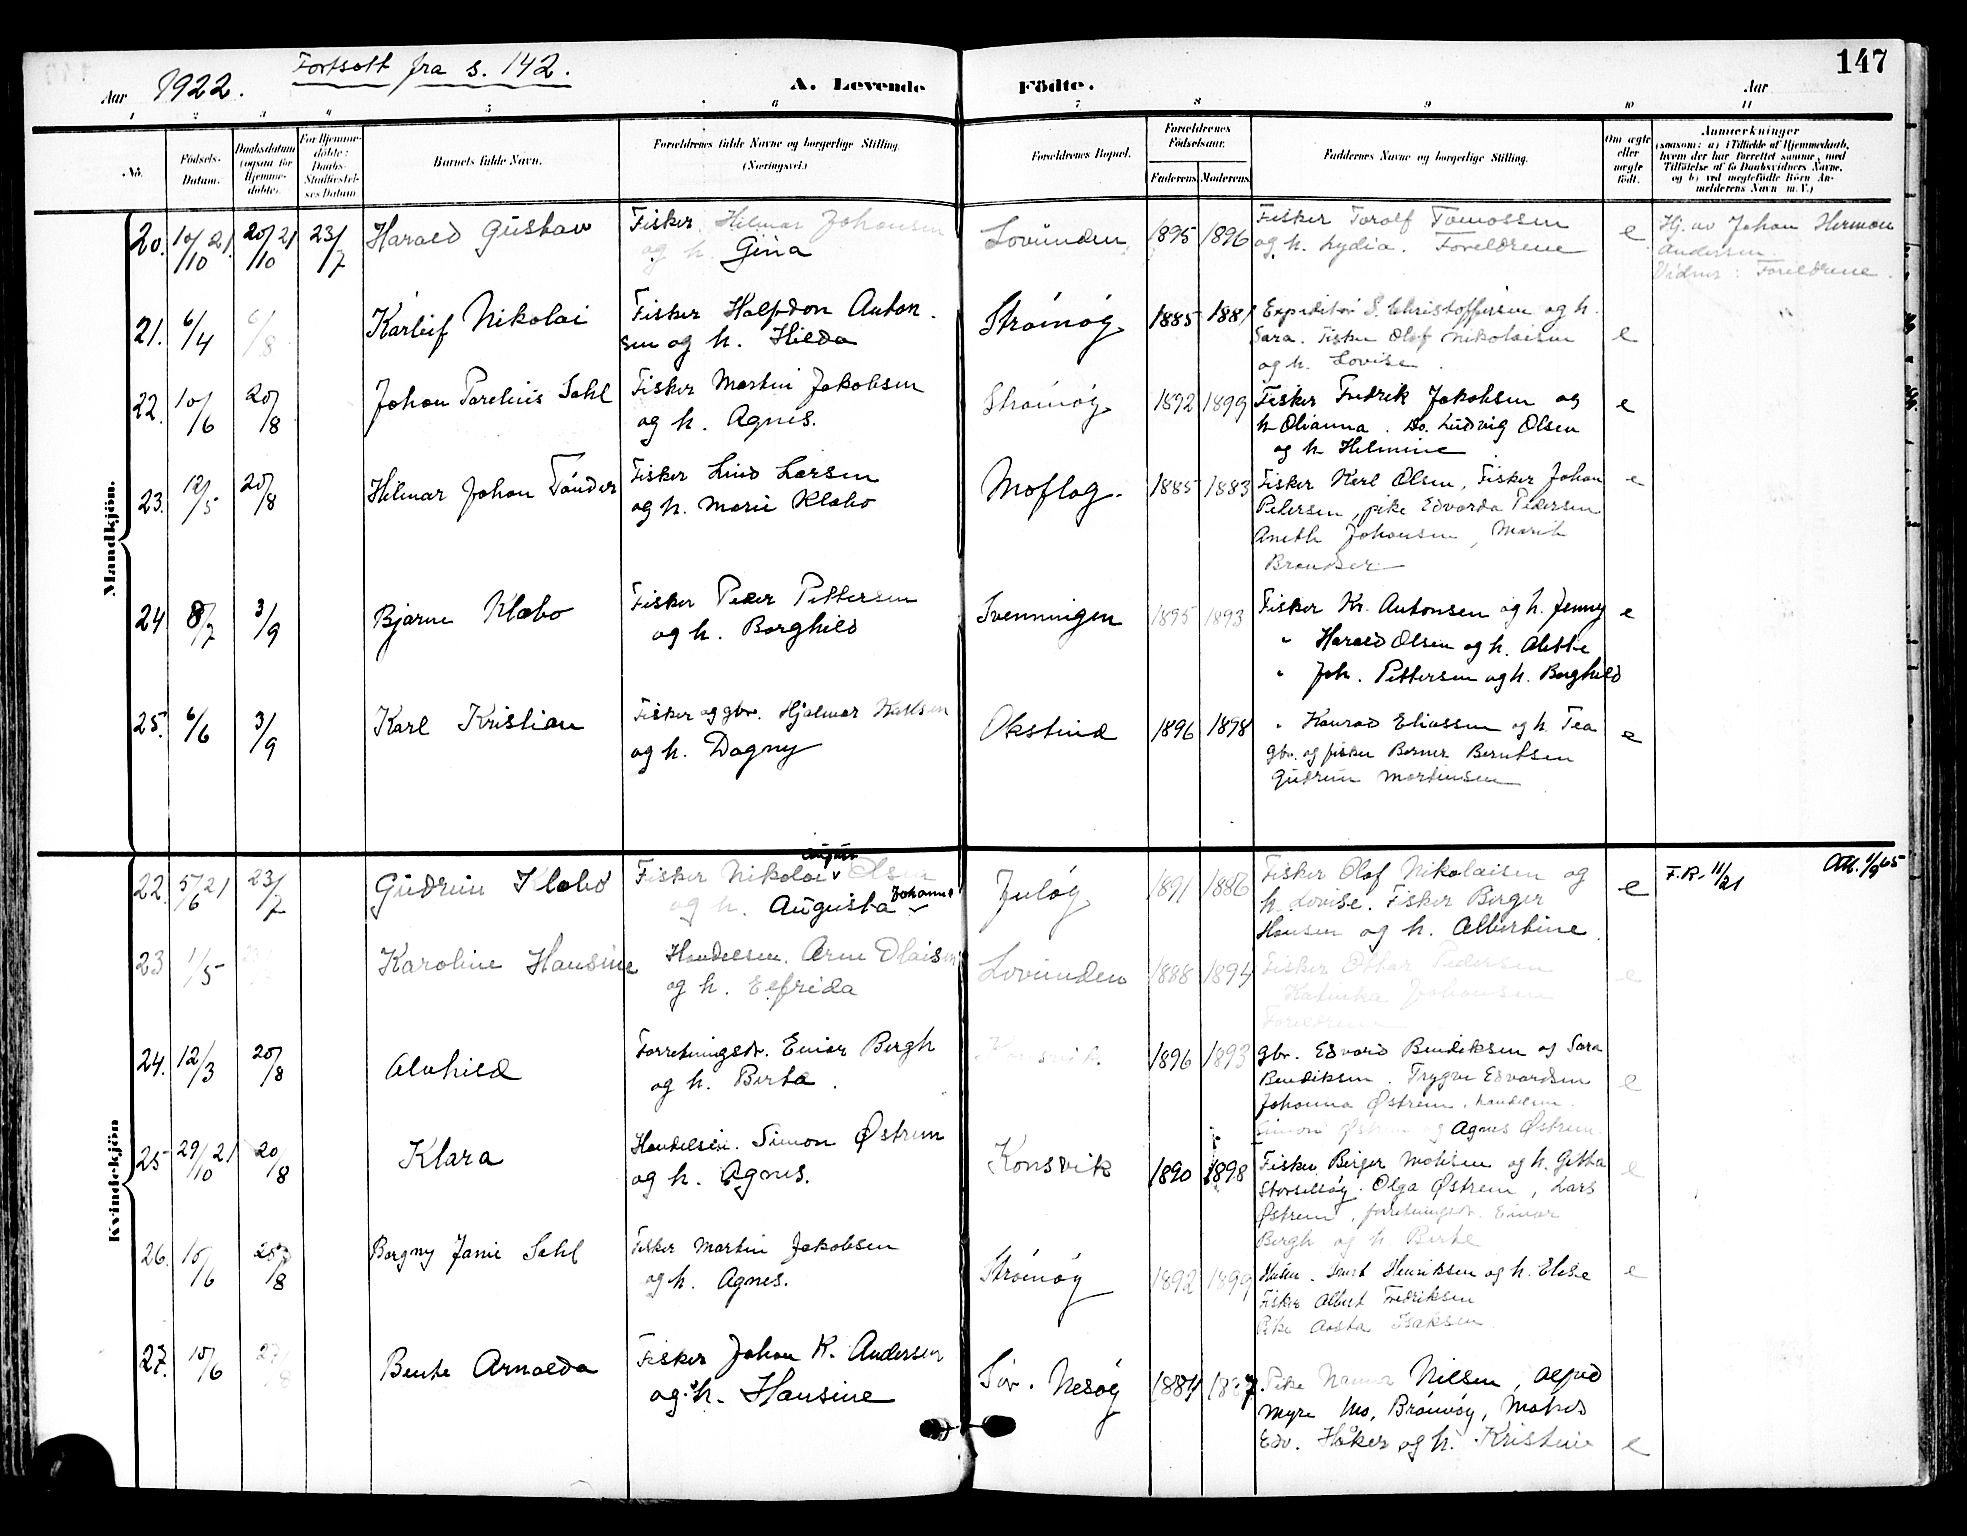 147
Aar 1922. Fortsatt fra s. 142. A. Levende Födte. Aar
1 2 3 4 5 6 7 8 9 10 11
No. Födsels-Datum. Daabsdatum (ogsaa for Hjemmedöbte). For Hjemmedöbte: Daabs-Stadfæstelses Datum. Barnets fulde Navn. Forældrenes fulde Navne og borgerlige Stilling. (Næringsvei.) Forældrenes Bopæl. Forældrenes Födselsaar. Faderens Moderens Faddernes Navne og borgerlige Stilling. Om ægte eller uægte födt. Anmærkninger
Mandkjön.
20. 10/10 21. 20/10 21 23/7 Harald Gustav Fisker Hilmar Johansen Lovunden 1895 1896 Fisker Torolf Tomassen e Hj. av Johan Herman
og h. Gina og h. Lydia. Foreldrene Andersen.
Vidner: Foreldrene.
21. 6/4 6/8 Karleif Nikolai Fisker Halfdan Anton- Strømøy 1885 1881 Expeditør S. Christoffersen og h.
sen og h. Hilda Sara. Fisker Olaf Nikolaisen e
og h. Lovise.
22. 10/6 20/8 Johan Parelius Sahl Fisker Martin Jakobsen Strømøy 1892 1899 Fisker Fredrik Jakobsen og e
og h. Agnes. h. Olianna. Do. Ludvig Olsen
og h. Helmine
23. 12/5 20/8 Hilmar Johan Tønder Fisker Lind Larsen Moflag. 1885 1883 Fisker Karl Olsen, Fisker Johan e
og h. Marie Klæbo Petersen, pike Edvarda Pedersen
Aneth Johansen, Marit
24 8/7 3/9 Bjarne Klæbo Fisker Peder Pettersen Svenningen 1895 1893 Fisker Kr. Antonsen og h. Jenny e
og h. Borghild " Harald Olsen og h. Alette
" Joh. Pettersen og h. Borghild
25. 6/6 3/9 Karl Kristian Fisker og gbr. Hjalmar Karlsen Okstind 1896 1898 " Konrad Eliassen og h. Tea
og h. Dagny gbr. og fisker Berner Berntsen e
Gudrun Martinsen
Kvindekjön
22. 5/6 21 23/7 Gudrun Klæbo Fisker Nikolai August Olsen Juløy 1891 1886 Fisker Olaf Nikolaisen og e F.R. 11/21 Att. 1/9 65
og h. Augusta Johanne h. Lovise. Fisker Birger
Hansen og h. Albertine.
23 1/5 Karoline Hansine Handelsm. Arne Olaisen Lovunden 1888 1894 Fisker Ottar Pedersen e
og h. Elfrida Katinka Johansen
Foreldrene
24. 12/3 20/8 Alvhild Forretningsdr. Einar Bergh Konsvik. 1896 1893 gbr. Edvard Bendiksen og Sara
og h. Berta. Bendiksen. Trygve Edvardsen e
Johanna Østrem. handelsm.
Simon Østrem og Agnes Østrem.
25 29/10 21 20/8 Klara Handelsm. Simon Østrem Konsvik 1890 1898 Fisker Birger Mathisen og h. Gitta e
og h. Agnes. Storselsøy. Olga Østrem, Lars
Østrem, forretningsdr. Einar
Bergh og h. Berte
26. 10/6 20/8 Borgny Janie Sahl Fisker Martin Jakobsen Strømøy 1892 1899 Henriksen og h. Elise e
og h. Agnes. Fisker Albert Fredriksen
Pike Aasta Isaksen
27. 10/6 27/8 Bente Arnolda Fisker Johan K. Andersen Sør. Nesøy 1884 1887. Pike Nanna Nielsen, Alfred
og h. Hansine Myre Mo, Brønnøy,
Edv. Håker og h. Kristine e